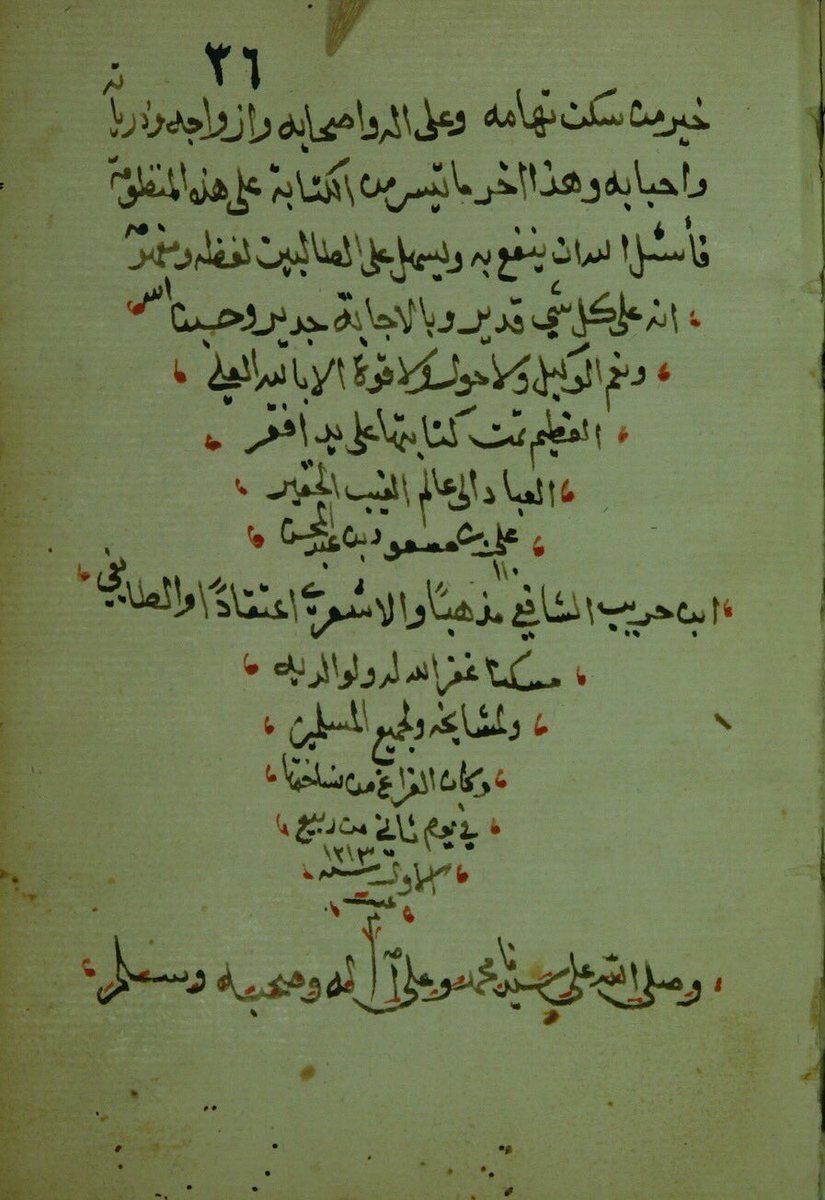 ٣٦
خير من سكن تهامه وعلى اله واصحابه وازواجه وذرياته
واحبابه وهذا اخر ما تيسر من الكتابة على هذه المنظومة
فأسئل الله ان ينفع به ويسهل على الطالبين لفظه وفهمه
انه على كل شي قدير وبالاجابة جدير وحسبنا الله
ونعم الوكيل ولا حول ولا قوة الا بالله العلي
العظيم تمت كتابتها على يد افقر
العباد الى عالم الغيب الحقير
علي بن مسعود بن عبد المحسن
ابن حريب الشافعي مذهبًا والاشعري اعتقادًا والطايفي
مسكنا غفر الله له ولوالديه
ولمشايخه ولجميع المسلمين
وكان الفراغ من نساختها
في يوم ثاني من ربيع
الاول سنه ١٢١٣
تمت
وصلى الله على سيدنا محمد وعلى آله وصحبه وسلم